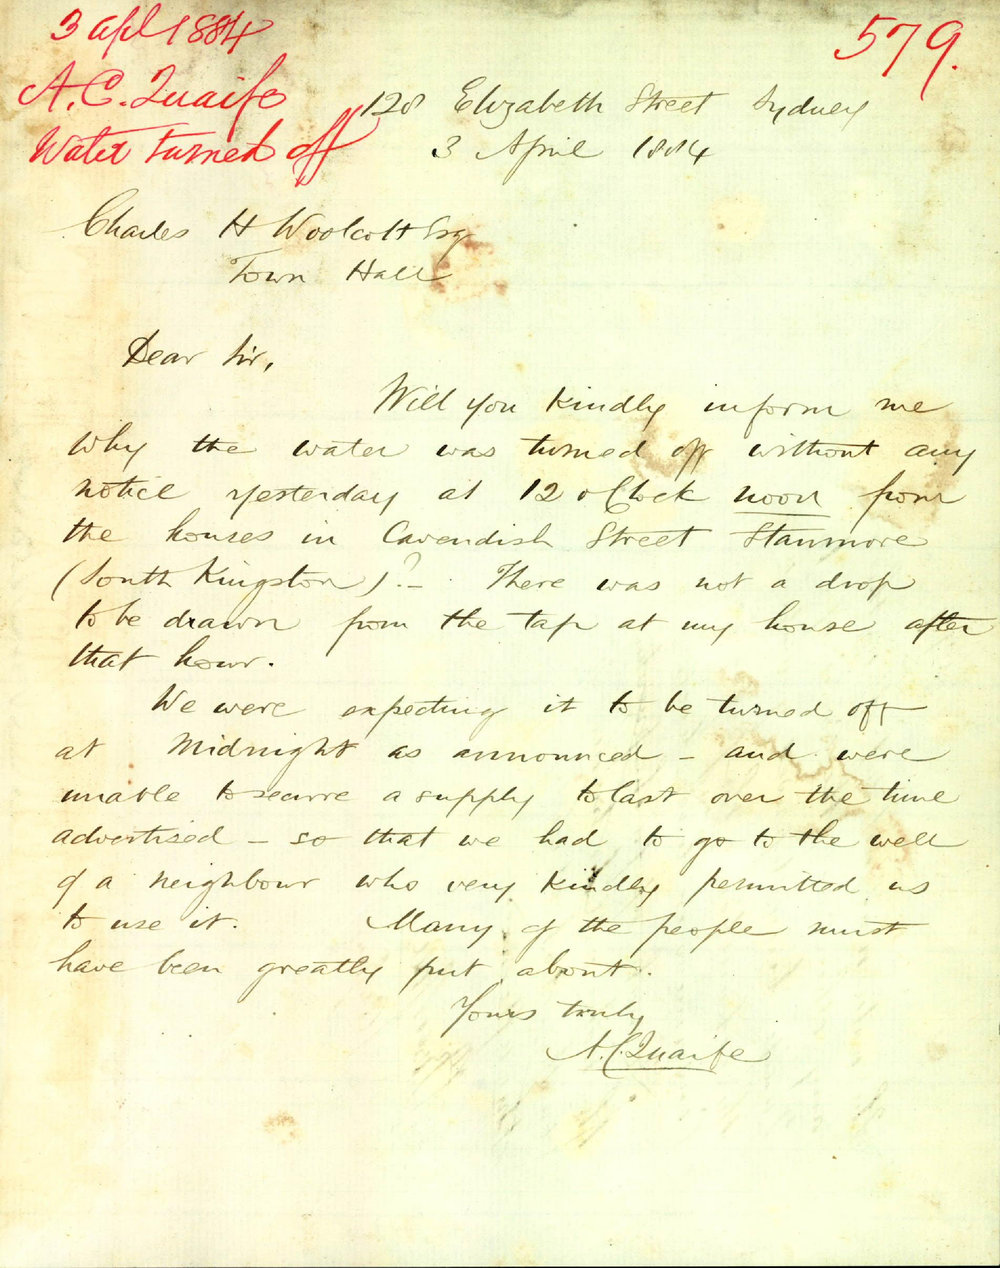 3 apl 1884
579.
A. C. Quaife
Water turned off
128 Elizabeth Street Sydney
3 April 1884
Charles H Woolcott Esq
Town Hall
Dear Sir,
Will you kindly inform me
why the water was turned off without any
notice yesterday at 12 o'Clock noon from
the houses in Cavendish Street Stanmore
(South Kingston)?- There was not a drop
to be drawn from the tap at my house after
that hour.
We were expecting it to be turned off
at Midnight as announced - and were
unable to secure a supply to last over the time
advertised - so that we had to go to the well
of a neighbour who very kindly permitted us
to use it. Many of the people must
have been greatly put about.
Yours truly
A. C. Quaife